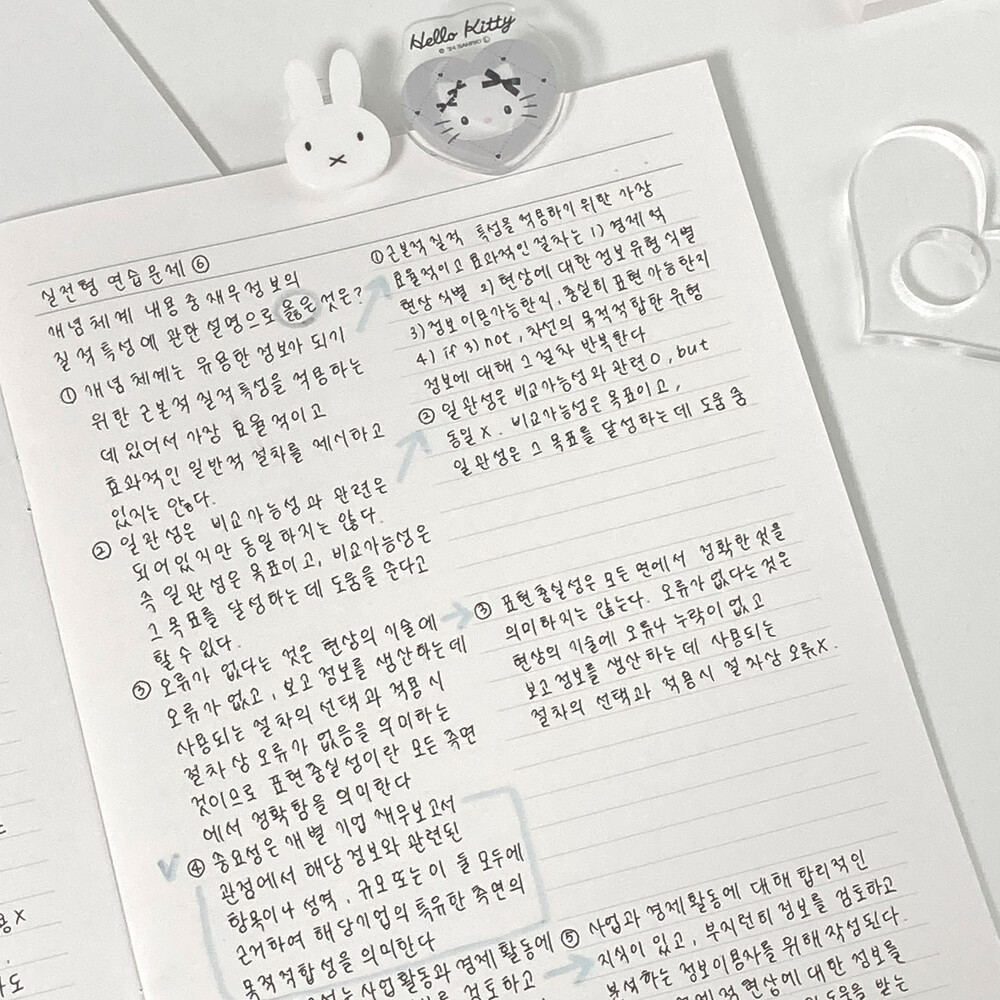 Hello Kitty
© '24 SANRIO
실전형 연습문제 ⑥
개념체계 내용 중 재무정보의
질적특성에 관한 설명으로 옳은 것은?
① 개념체계는 유용한 정보가 되기
위한 근본적 질적특성을 적용하는
데 있어서 가장 효율적이고
효과적인 일반적 절차를 제시하고
있지는 않다.
② 일관성은 비교가능성과 관련은
되어있지만 동일하지는 않다.
즉 일관성은 목표이고, 비교가능성은
그 목표를 달성하는데 도움을 준다고
할 수 있다.
③ 오류가 없다는 것은 현상의 기술에
오류가 없고, 보고 정보를 생산하는데
사용되는 절차의 선택과 적용 시
절차상 오류가 없음을 의미하는
것이므로 표현충실성이란 모든 측면
에서 정확함을 의미한다
④ 중요성은 개별 기업 재무보고서
관점에서 해당 정보와 관련된
항목이나 성격, 규모 또는 이 둘 모두에
근거하여 해당기업의 특유한 측면의
목적적합성을 의미한다
는 사업활동과 경제활동에
검토하고
① 근본적 질적 특성을 적용하기 위한 가장
효율적이고 효과적인 절차는 1) 경제적
현상 식별 2) 현상에 대한 정보유형 식별
3) 정보이용가능한지, 충실히 표현 가능한지
4) if 3) not, 차선의 목적적합한 유형
정보에 대해 그 절차 반복한다
② 일관성은 비교가능성과 관련O, but
동일 X. 비교가능성은 목표이고,
일관성은 그 목표를 달성하는데 도움 줌
③ 표현충실성은 모든 면에서 정확한 것을
의미하지는 않는다. 오류가 없다는 것은
현상의 기술에 오류나 누락이 없고
보고 정보를 생산하는데 사용되는
절차의 선택과 적용시 절차상 오류X.
⑤ 사업과 경제활동에 대해 합리적인
지식이 있고, 부지런히 정보를 검토하고
분석하는 정보이용자를 위해 작성된다.
적 현상에 대한 정보를
도움을 받는